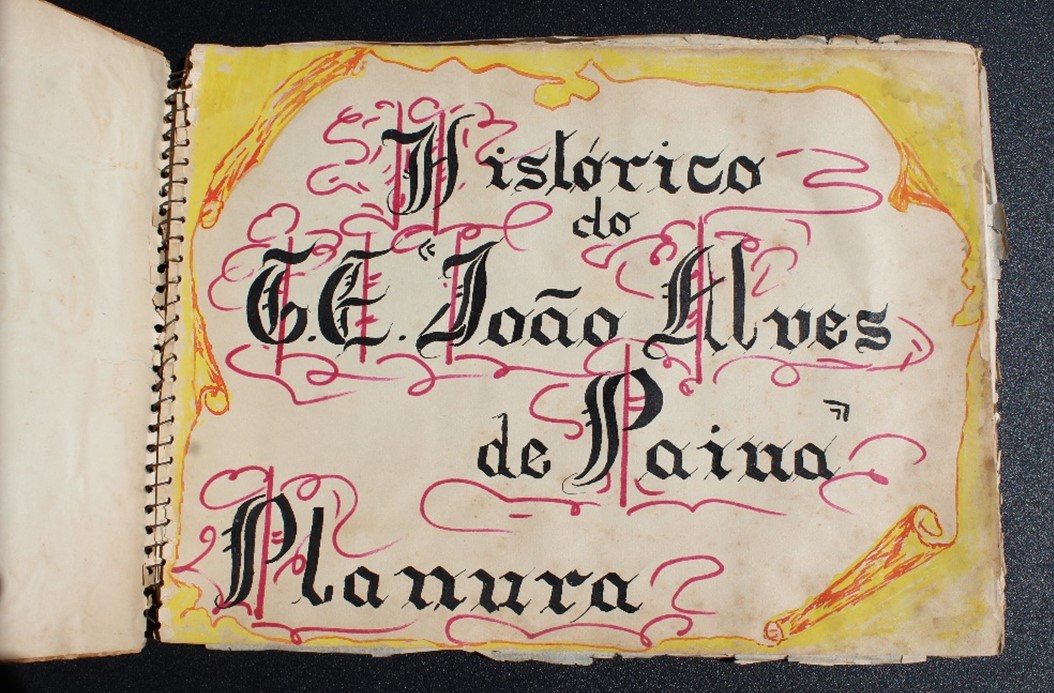 Histórico
do
G.E. "João Alves
de Paiva"
Planura